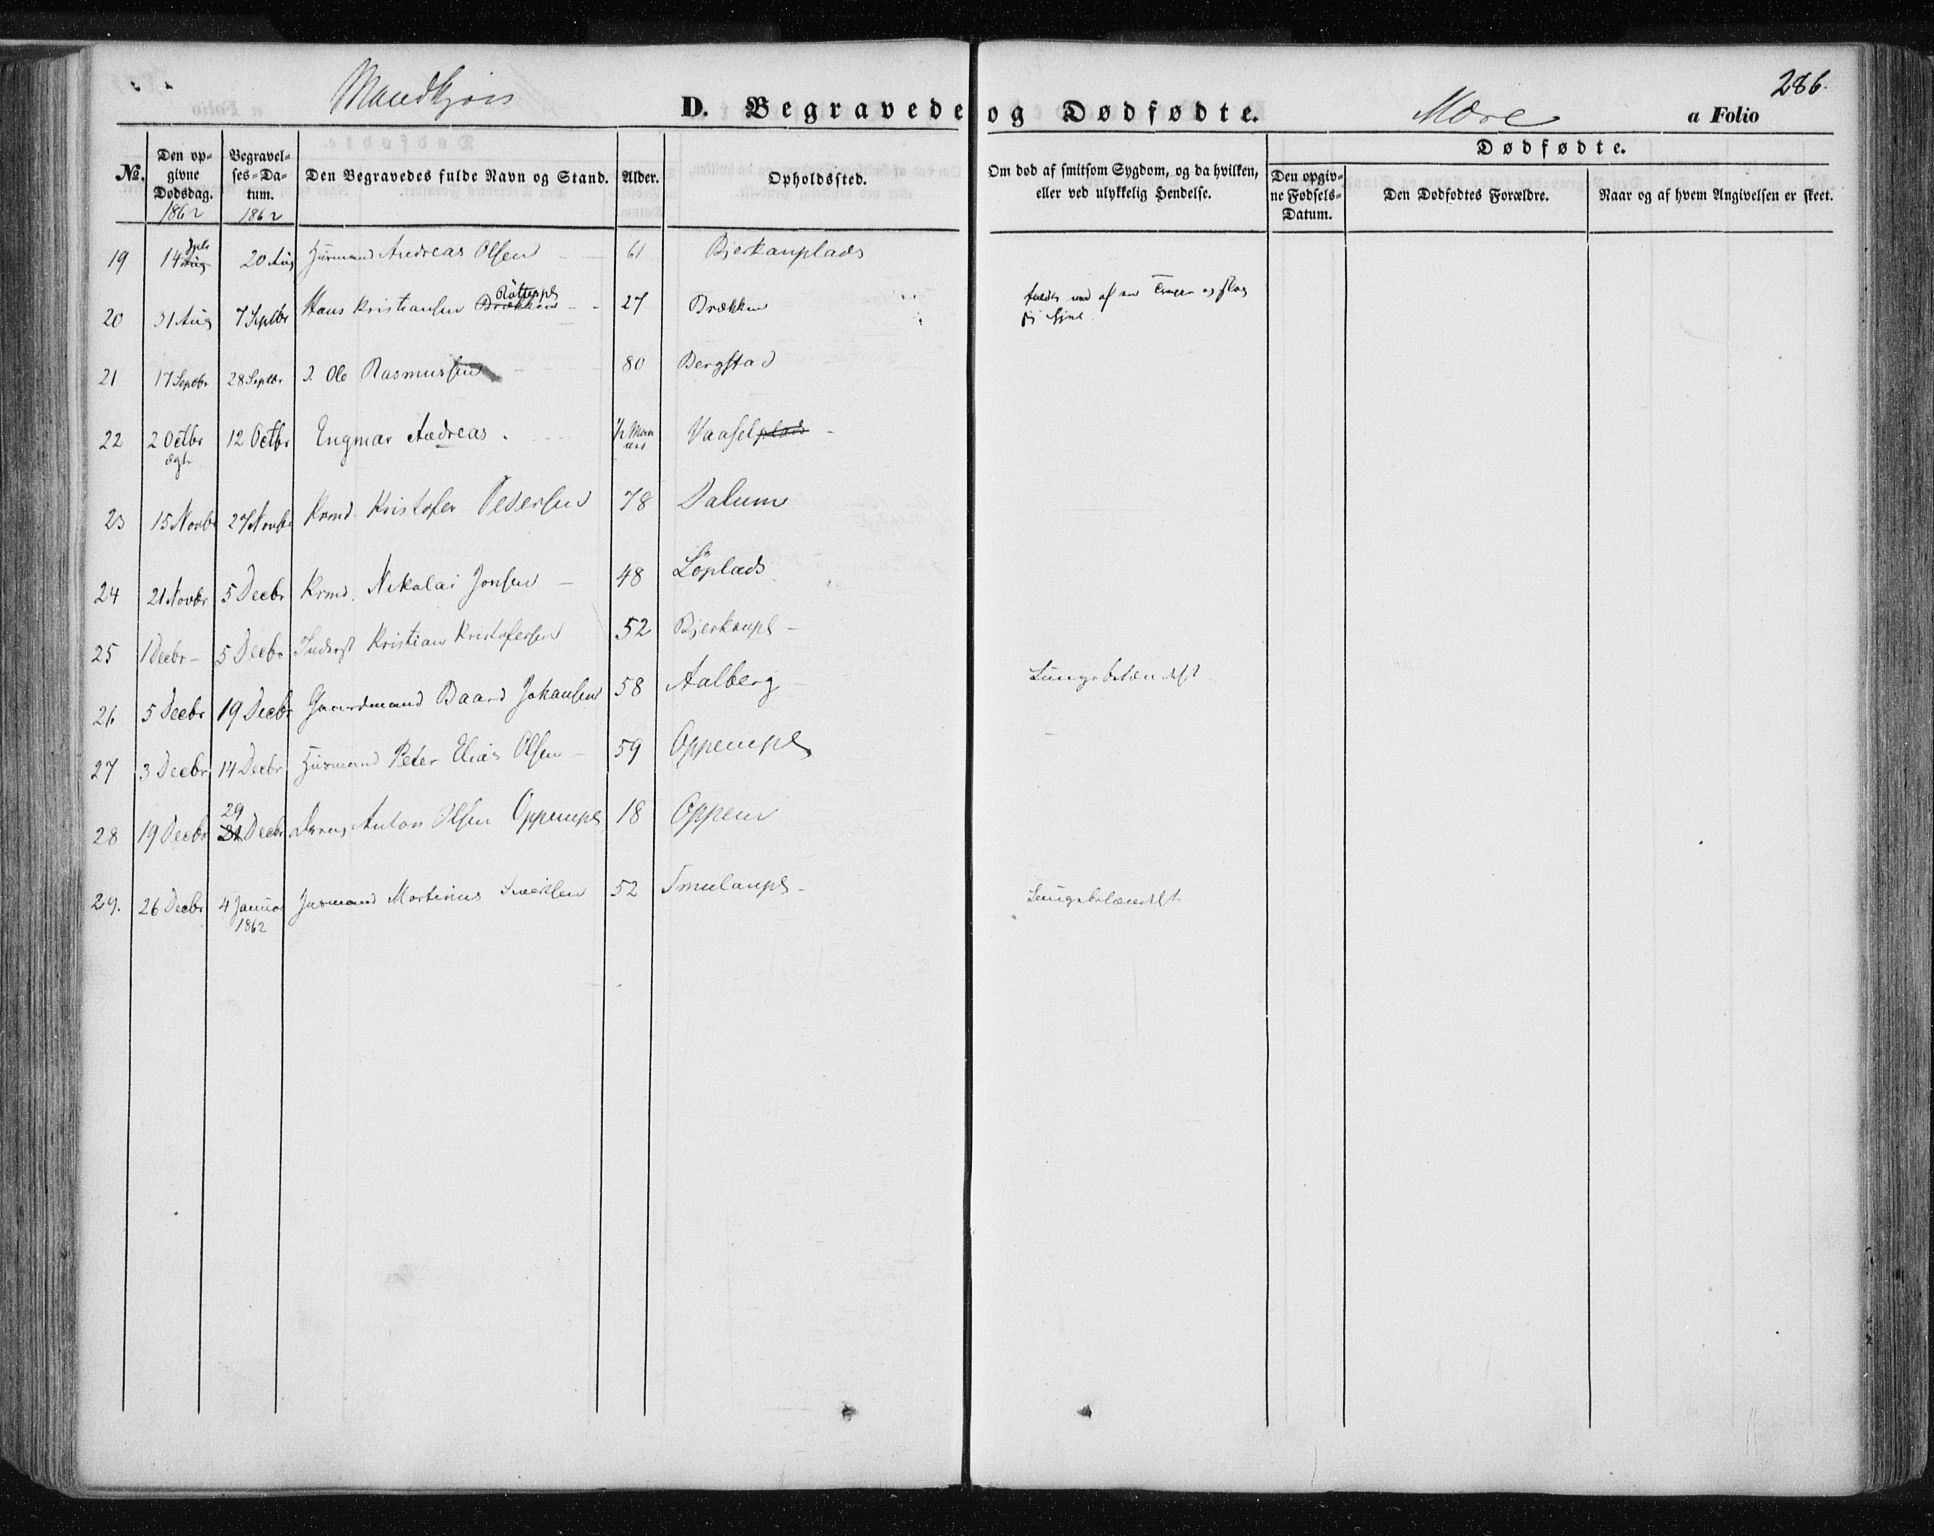 Mandkjøn
D. Begravede og Dødfødte.
Mære
a Folio
286.
No.
Den opgivne Dødsdag. 1862
Begravelses-Datum. 1862
Den Begravedes fulde Navn og Stand.
Alder.
Opholdssted.
Om død af smitsom Sygdom, og da hvilken, eller ved ulykkelig Hendelse.
Dødfødte.
Den opgivne Fødsels-Datum.
Den Dødfødtes Forældre.
Naar og af hvem Angivelsen er skeet.
19 14 Aug 20 Aug Husmand Andreas Olsen 61 Bjerkanplads
20 31 Aug 7 Septbr Hans Kristiansen Brækken 27 Brækken af en og slog
sig
21 17 Septbr 28 Septbr Ole Rasmussen 80 Bergstad
22 2 Octbr 12 Octbr Engmar Andreas. 1/2 Vaaselplads
ægte
23 15 Novbr 27 Novbr Krmd. Kristofer Pedersen 78 Dalum
24 21 Novbr 5 Decbr Krmd. Nikolai Jonsen 48 Löplads
25 1 Decbr 5 Decbr Inderst Kristian Kristofersen 52 Bjerkanpl
26 5 Decbr 19 Decbr Gaardmand Baard Johansen 58 Aalberg Lungebetændelse
27 3 Decbr 14 Decbr Husmand Peter Elias Olsen 59 Oppempl
28 19 Decbr 29 21 Decbr Anton Olsen Oppempl 18 Oppem
29. 26 Decbr 4 Januar 1862 Husmand Martinus 52 Lungebetændelse